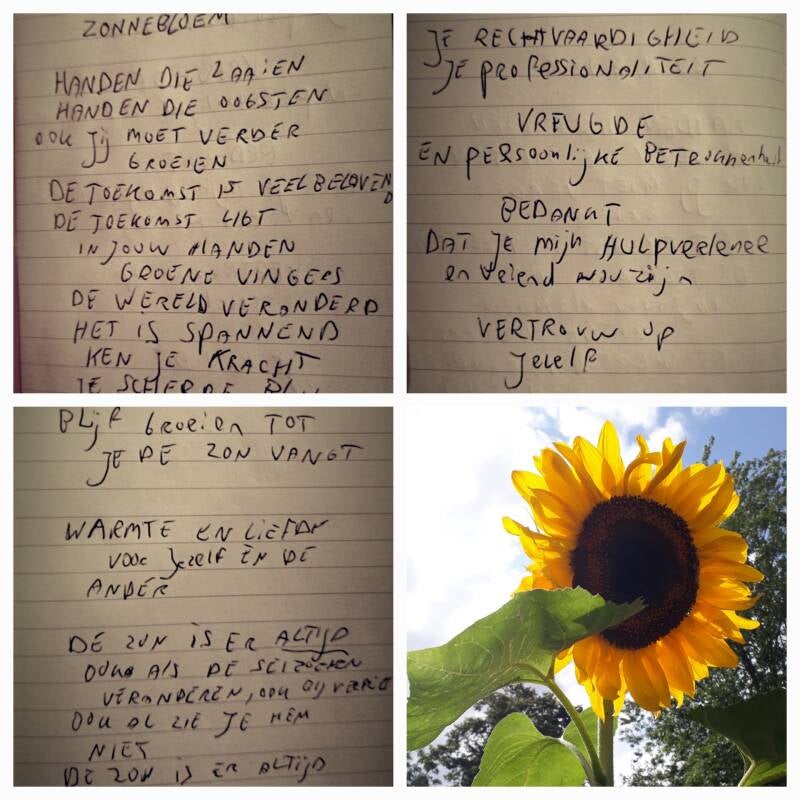 ZONNEBLOEM
HANDEN DIE ZAAIEN
HANDEN DIE OOGSTEN
OOK JIJ MOET VERDER
GROEIEN
DE TOEKOMST IS VEELBELOVEND
DE TOEKOMST LIGT
IN JOUW HANDEN
GROENE VINGERS
DE WERELD VERANDERD
HET IS SPANNEND
KEN JE KRACHT
JE SCHERPE
JE RECHTVAARDIGHEID
JE PROFESSIONALITEIT
VREUGDE
EN PERSOONLIJKE BETROKKENHEID
BEDANKT
DAT JE MIJN HULPVERLENER
en vriend wou zijn
VERTROUW OP
Jezelf
BLIJF Groeien TOT
JE DE ZON VANGT
WARMTE EN LIEFDE
VOOR Jezelf EN DE
ANDER
DE ZON IS ER ALTIJD
OOK ALS DE SEIZOENEN
VERANDEREN, OOK BIJ
OOK AL ZIE JE HEM
NIET
DE ZON IS ER ALTIJD